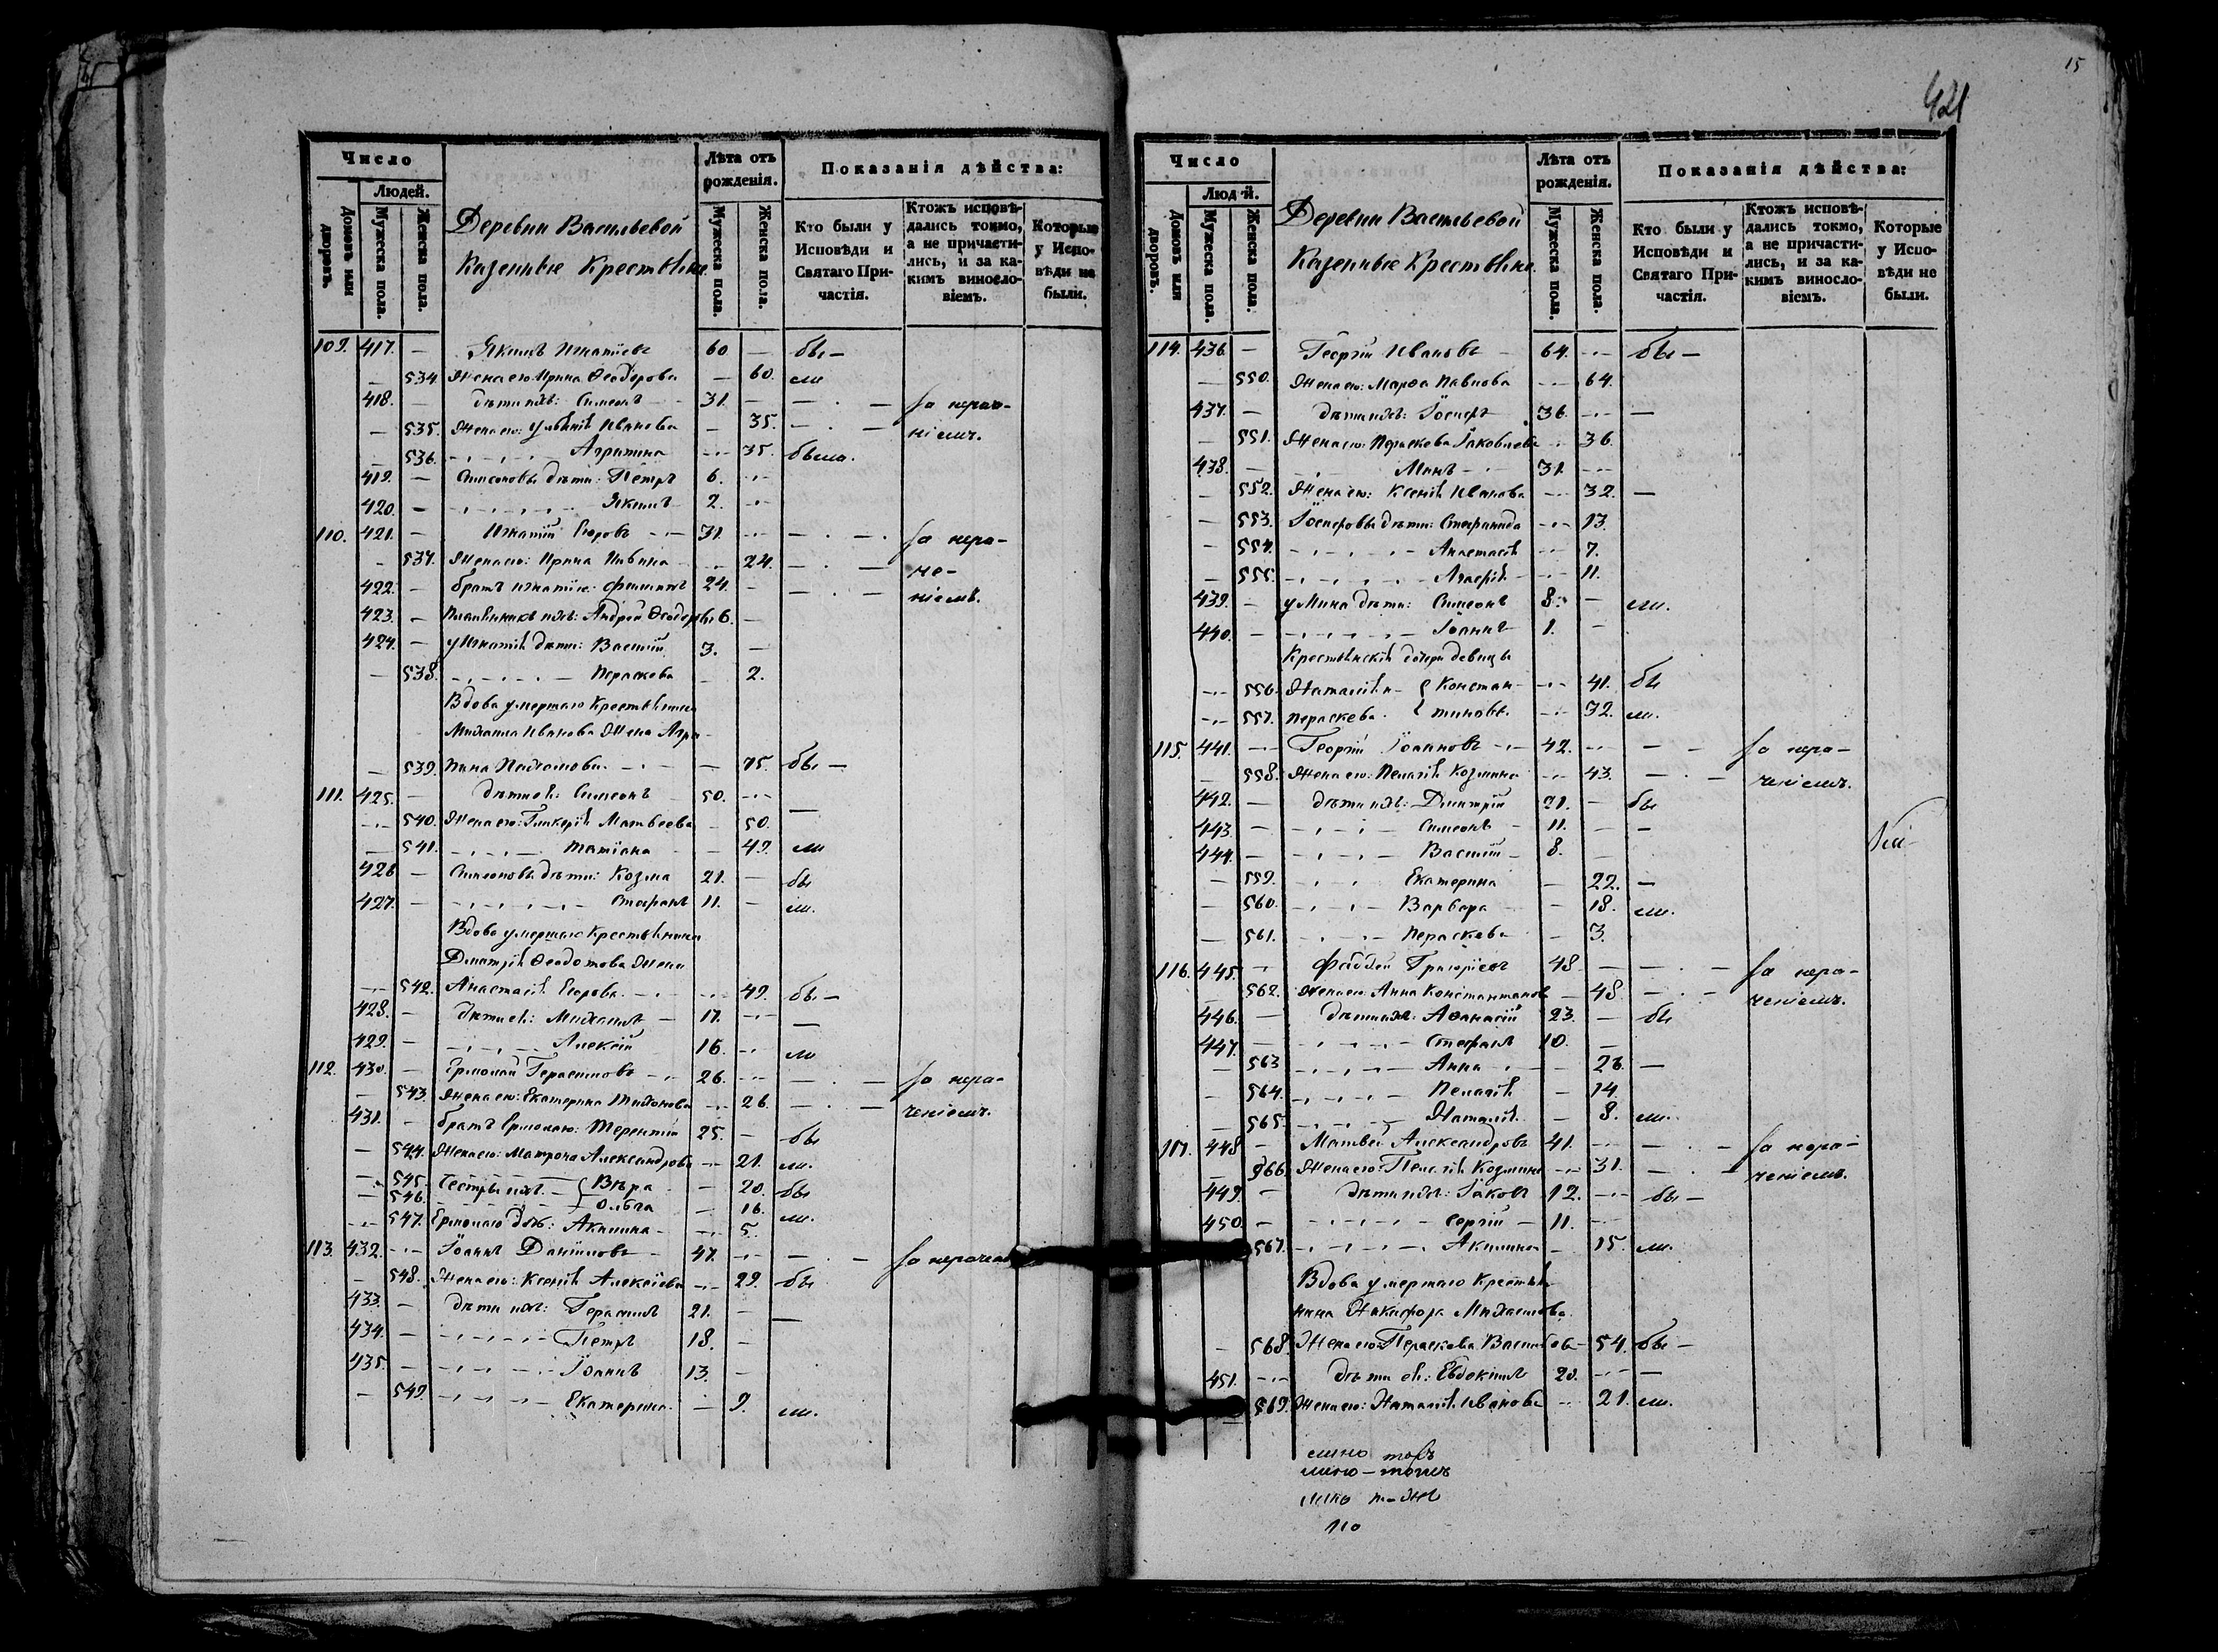 15
421
Число
Людей.
Домовъ или дворовъ.
Мужеска пола.
Женска пола.
Деревни Васильевой
Казенные Крестьяне.
Лѣта отъ рожденія.
Мужеска пола.
Женска пола.
Показанія дѣйства:
Кто были у Исповѣди и Святаго Причастія.
Ктожъ исповѣдались токмо, а не причастились, и за каким винословіемъ.
Которые у Исповѣди не были.
109. 417. — Якимъ Игнатіевъ 60 — бы—
— 534. Жена его: Ирина Ѳеодорова — 60. ли
418. — дѣти ихъ: Симеонъ 31. — — . — За нераче-
— 535. Жена его: Уліанія Иванова — 35. — . — ніемъ.
— 536. Агрипина 35. была.
419. — Симеоновы дѣти: Петръ 6.
420. — Якимъ 2.
110. 421. — Игнатій Егоровъ 31. — . — За нера-
— 537. Жена его: Ирина 24. — . — че-
422. — братъ Игнатія: Филиппъ 24. — — . — ніемъ.
423. — Племянникъ ихъ: Андрей 6. —
424. — у Игнатія дѣти: Василій 3. —
— 538. Пераскева — 2.
Вдова умершаго Крестьянина
Михаила Иванова Жена Агри-
— 539. пина — 75. бы—
111. 425. — дѣти ея: Симеонъ 50. —
540. Жена его: Гликерія Матвѣева — 50.
— 541. Татіана — 49. ли
426 — Симеоновы дѣти: Козма 21. — бы
427. — Стефанъ 11. — ли.
Вдова умершаго Крестьянина
Дмитрія Ѳеодотова Жена
542. Анастасія Егорова 49. бы—
428. — дѣти ея: Михаилъ — 17. —
429. — Алексій 16. ли
112. 430. — Ермолай Герасимовъ 26. — . — За нера-
— 543. Жена его: Екатерина Тихонова 26. — . — ченіемъ.
431. — братъ Ермолаю: Терентій 25. — бы
— 544. Жена его: Матрона Александрова 21. ли.
545. Сестры ихъ — Вѣра — 20. бы
— 546. Ольга — 16. ли.
547. Ермолаю дочь: Акилина 5.
113. 432. Іоаннъ Даніиловъ 47. — . — За нераче
— 548. Жена его: Ксенія Алексіева 29. бы
433. — дѣти ихъ: Герасимъ 21. — —
434. — Петръ 18. —
435. — Іоаннъ 13. —
— 549. Екатерина — 9. ли.
Число
Людей.
Домовъ или дворовъ.
Мужеска пола.
Женска пола.
Деревни Васильевой
Казенные Крестьяне.
Лѣта отъ рожденія.
Мужеска пола.
Женска пола.
Показанія дѣйства:
Кто были у Исповѣди и Святаго Причастія.
Ктожъ исповѣдались токмо, а не причастились, и за каким винословіемъ.
Которые у Исповѣди не были.
114. 436. — Георгій Ивановъ — 64. бы—
— 550. Жена его: Марѳа Павлова 64.
437. — дѣти ихъ: Іосифъ 36. —
— 551. Жена его: Пераскева Іаковлева 36.
438. — Мина 31.
— 552. Жена его: Ксенія Иванова 32. —
— 553. Іосифовы дѣти: Стефанида 13.
— 554. Анастасія 7.
— 555. Агафія 11.
439. — у Мина дѣти: Симеонъ 8. — ли.
440. — Іоаннъ 1. —
Крестьянскія дочери девицы
556. Наталія Констан- 41. бы
557. Пераскева тиновы 32. ли.
115. 441. Георгій Іоанновъ 42. — — За нера-
— 558. Жена его: Пелагія Козмина 43. — . — ченіемъ.
442. — дѣти ихъ: Дмитрій 21. — бы
443. — Симеонъ 11. — —
444. — Василій 8. —
— 559. Екатерина — 22. —
— 560. Варвара — 18. ли.
— 561. Пераскева — 3.
116. 445. Фаддей Григорьевъ 48 — — . — За нера-
— 562. Жена его: Анна Константинова — 48. — . — ченіемъ.
446. — дѣти ихъ: Аѳанасій 23. — бы
447. — Стефанъ 10. —
— 563 Анна — 26. —
— 564. Пелагія — 14.
— 565. Наталія. — 8. ли.
117. 448 — Матвей Александровъ 41. — . — За нера-
— 566. Жена его: Пелагія Козмина 31. — . — ченіемъ.
449. — дѣти ихъ: Іаковъ 12. бы—
450. — Сергій — 11.
567. Акилина — 15. ли.
Вдова умершаго Крестья-
нина Никифора Михаилова
— 568. Жена его: Пераскева 54. бы—
451. дѣти ея: Евдокимъ 20. —
— 569. Жена его: Наталія Иванова 21. ли.